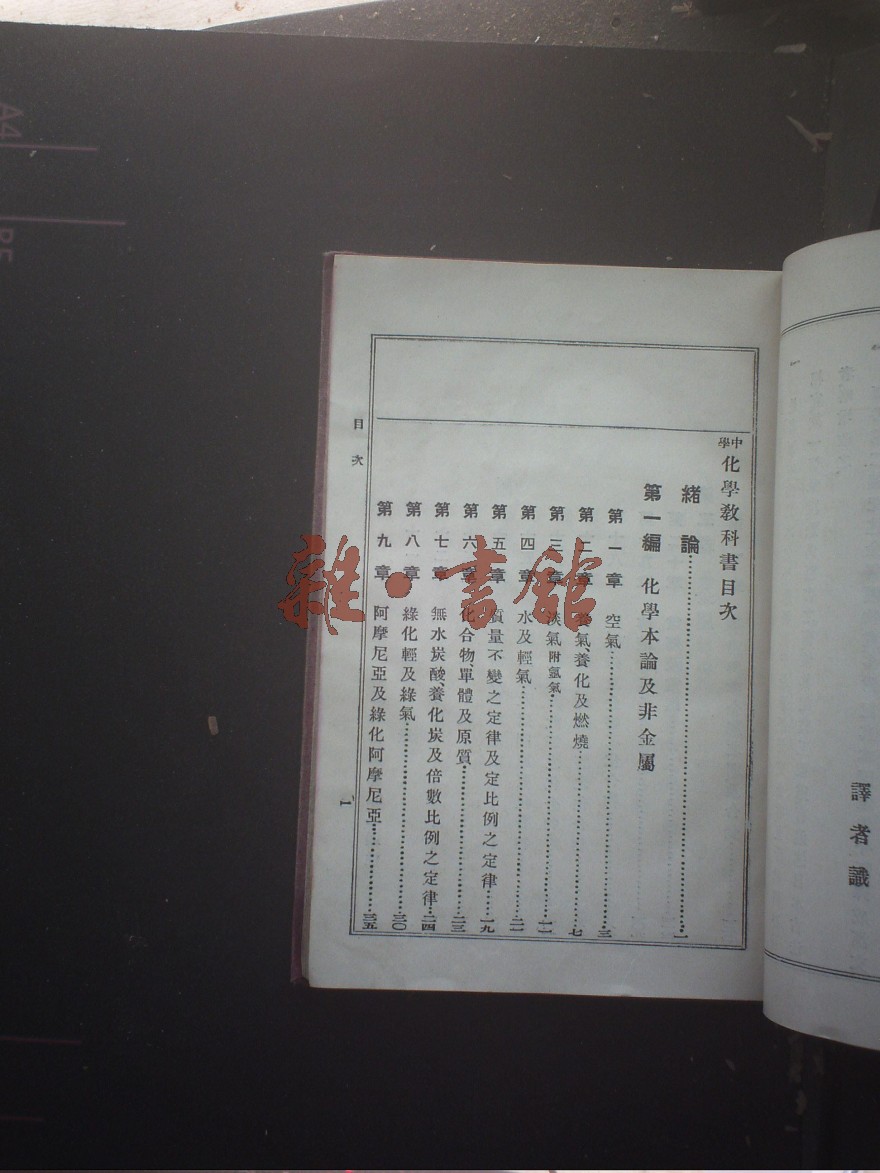 譯者識
中學化學教科書目次
緒論 一
第一編 化學本論及非金屬
第一章 空氣 三
第二章 養氣、養化及燃燒 七
第三章 淡氣附氬氣 一一
第四章 水及輕氣 二一
第五章 質量不變之定律及定比例之定律 一九
第六章 化合物、單體及原質 二三
第七章 無水炭酸、養化炭及倍數比例之定律 二四
第八章 綠化輕及綠氣 三〇
第九章 阿摩尼亞及綠化阿摩尼亞 三五
目次
1
雜·書館
A4